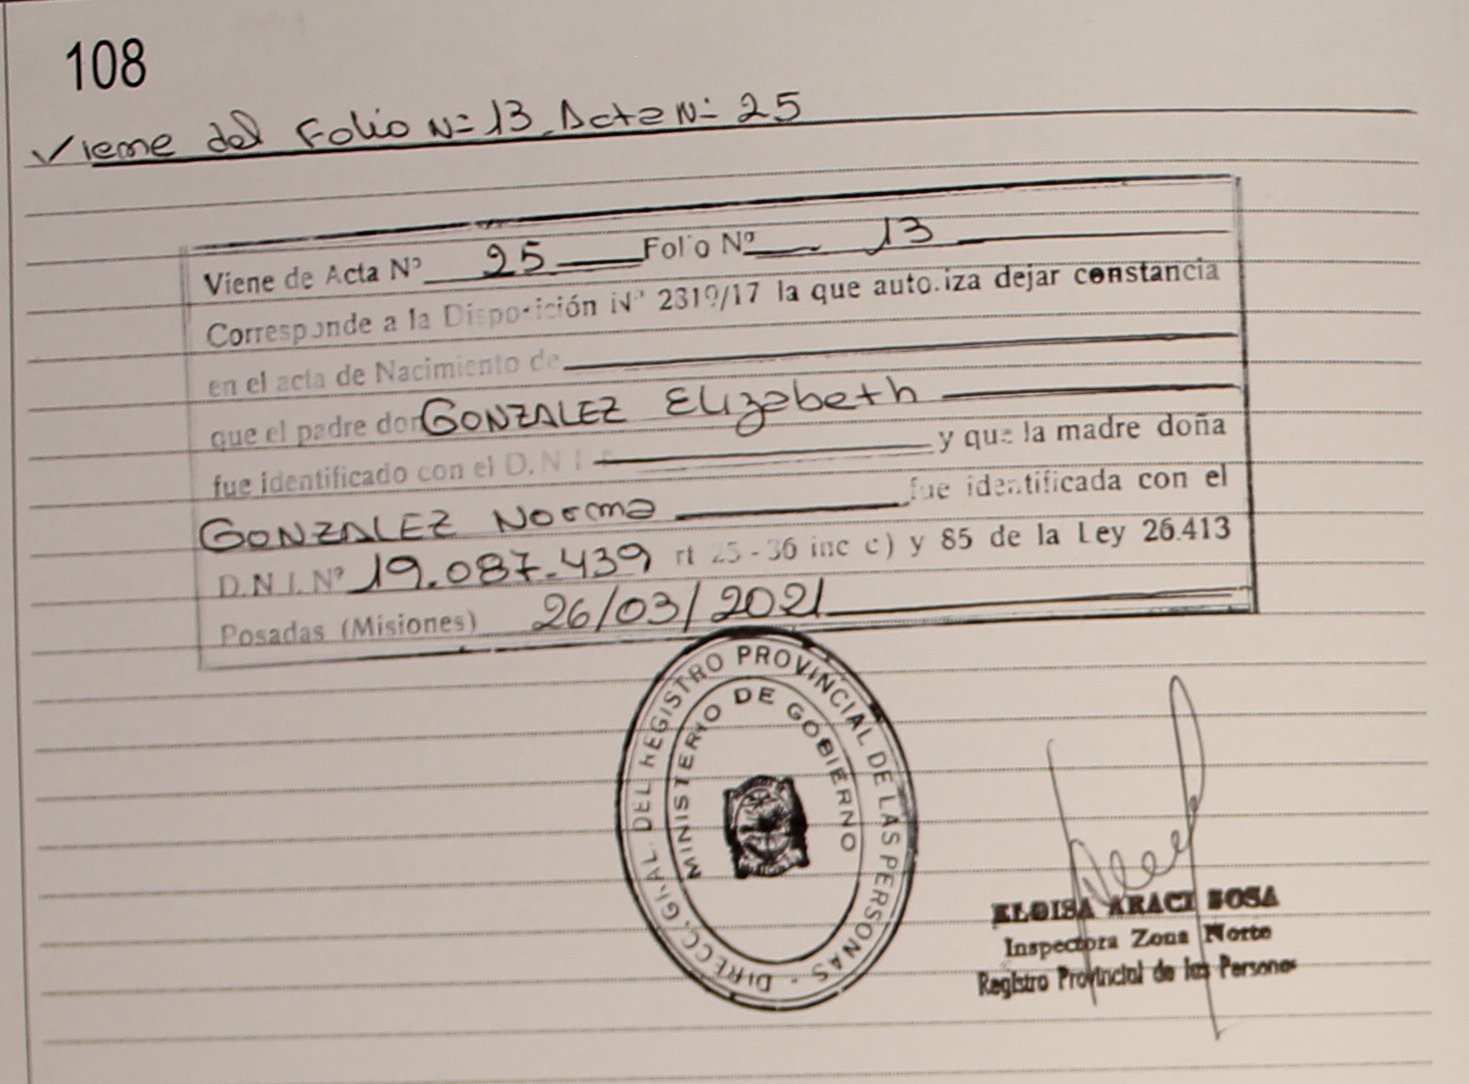 108
Viene del Folio N= 13. Acta N= 25
Viene de Acta Nº 25 Folio Nº 13
Corresponde a la Disposición Nº 2319/17 la que autoriza dejar constancia
en el acta de Nacimiento de
que el padre don GONZALEZ Elizabeth
fue identificado con el D.N.I. y que la madre doña
GONZALEZ Norma fue identificada con el
D.N.I. Nº 19.087.439 rt 25-36 inc c) y 85 de la Ley 26.413
Posadas (Misiones) 26/03/2021
DIRECC. GRAL. DEL REGISTRO PROVINCIAL DE LAS PERSONAS
MINISTERIO DE GOBIERNO
ELOISA ARACI SOSA
Inspectora Zona Norte
Registro Provincial de las Personas